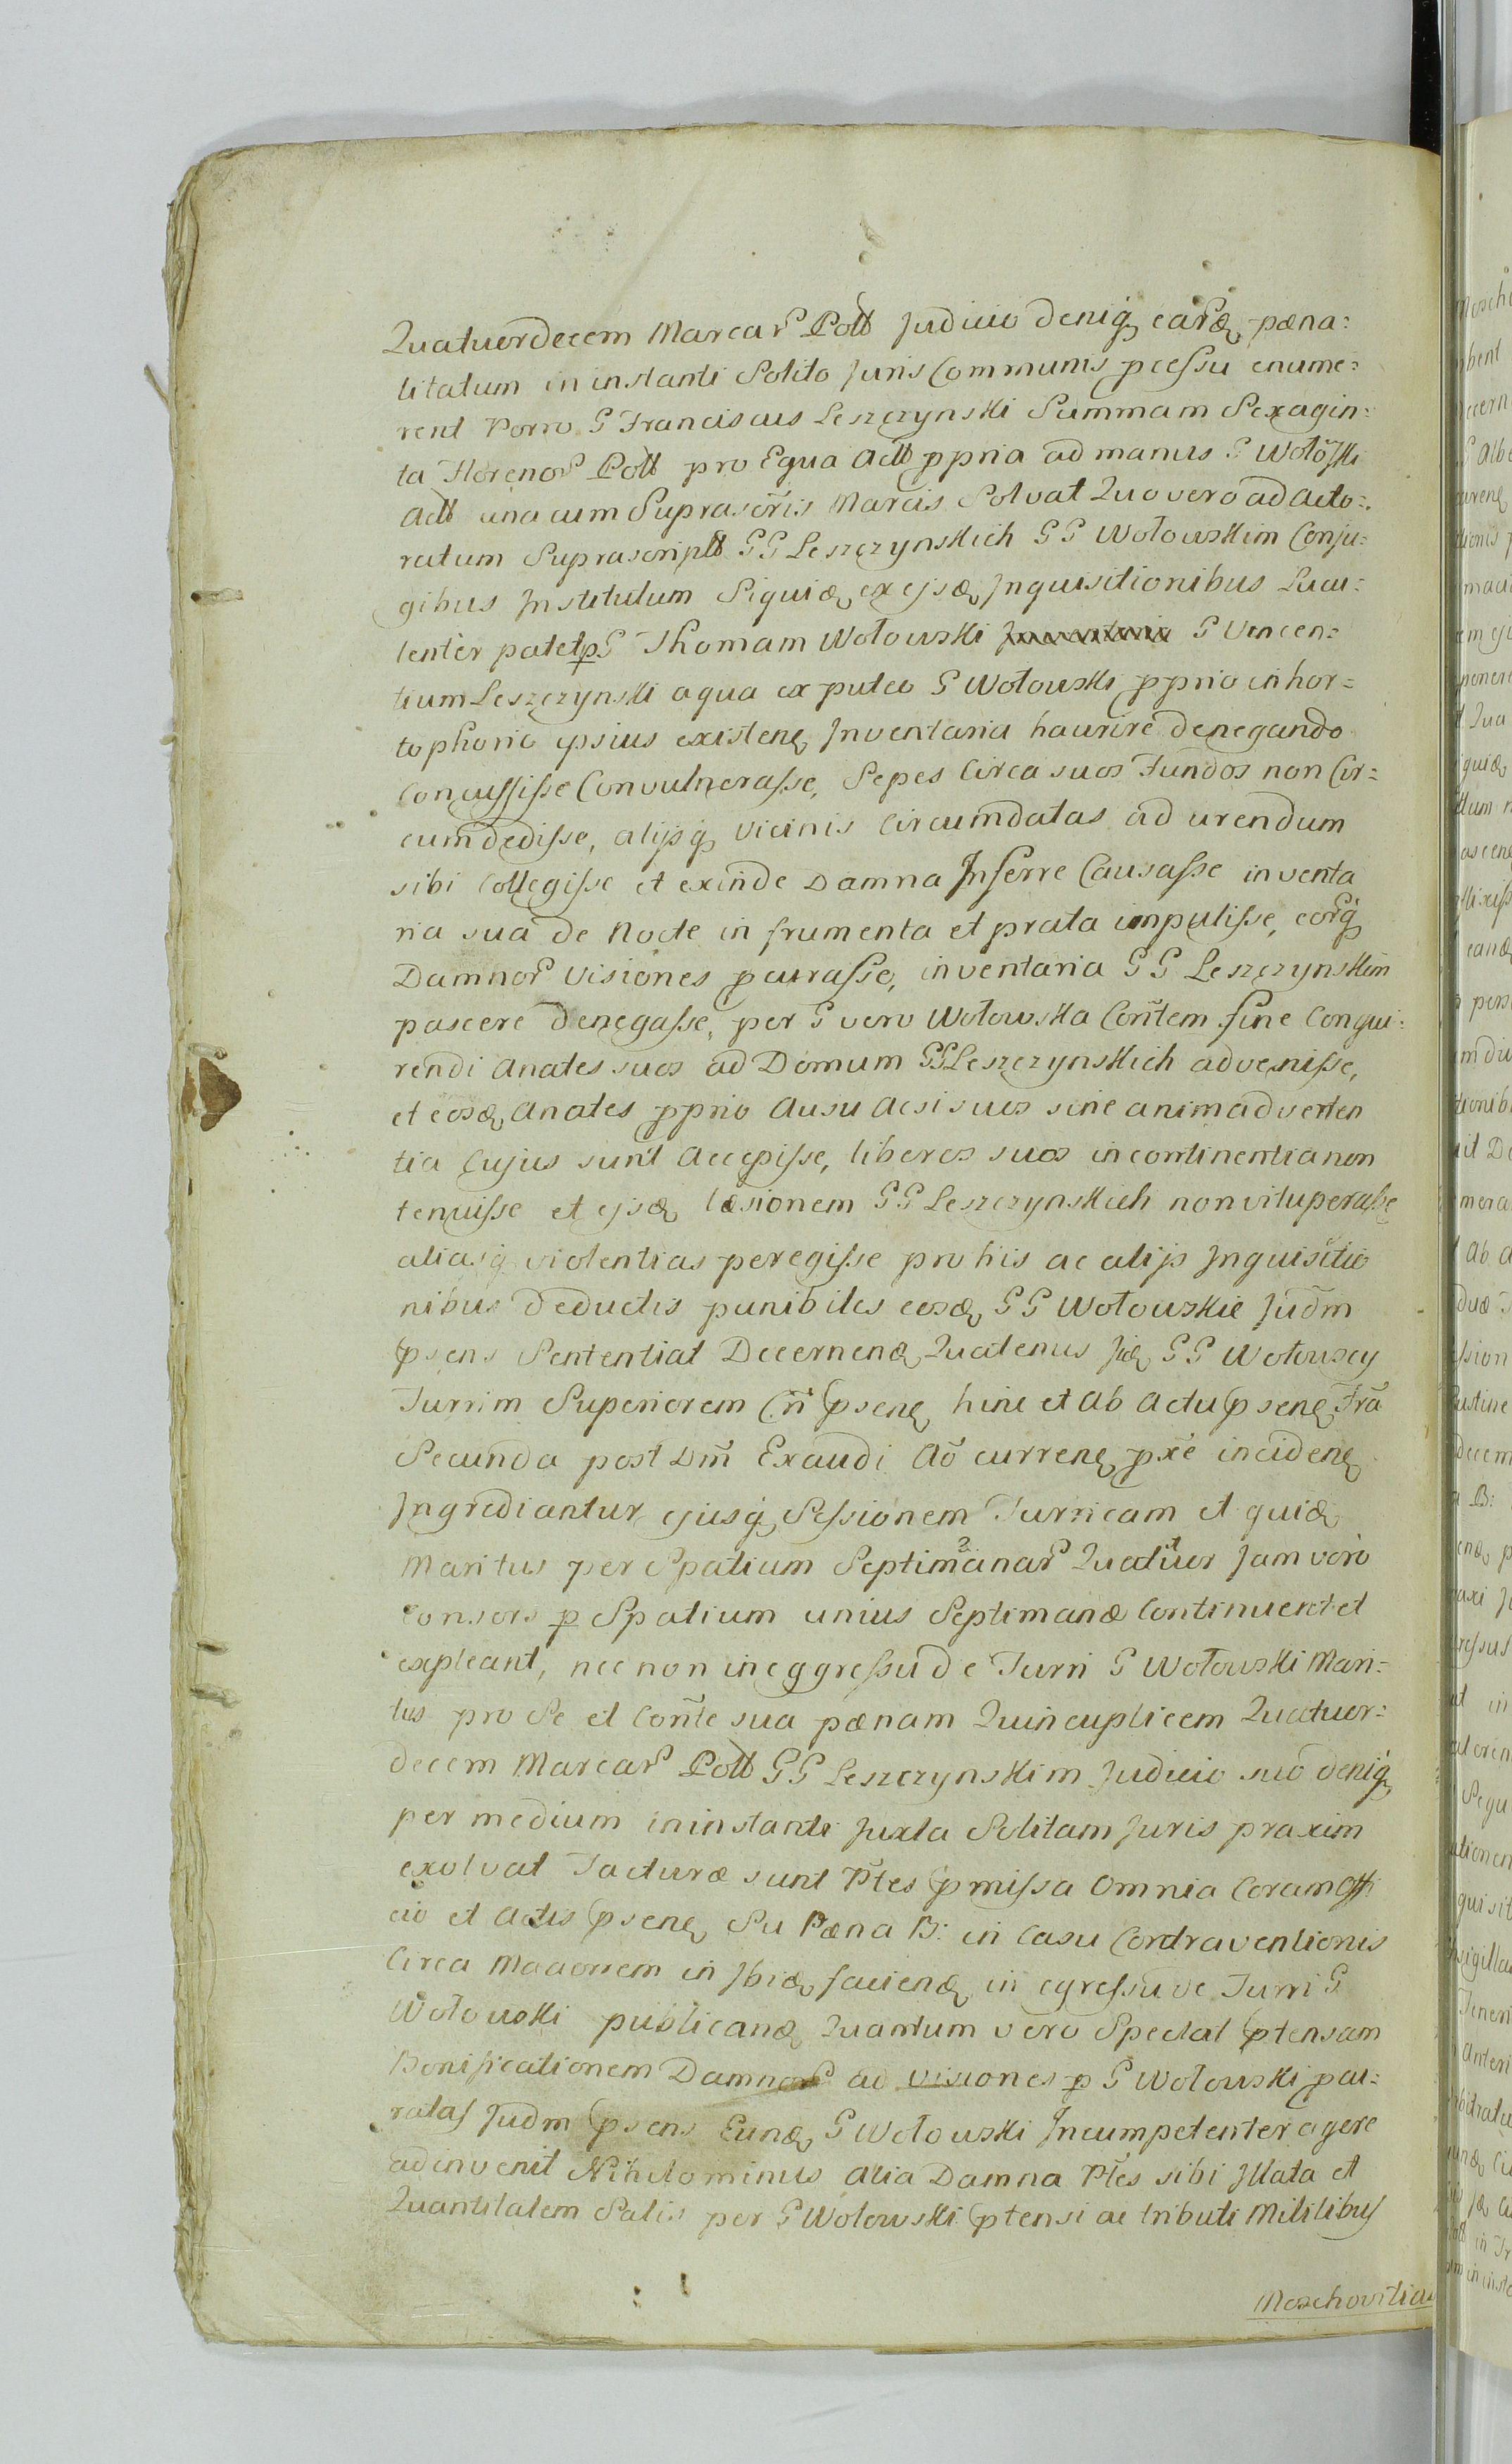 Quatuordecem Marcar Poll Judicio deniq eardae paena:
litatum in instanti Solito Juris Communis pcessu enume:
rent Porro G Franciscus Leszczynski Summam Sexagin:
ta Florenor Poll pro Equa Act ppria ad manus G Wołoski
Act una cum Suprascris Marcis Solvat Quo vero ad acto:
ratum Suprascript GG Leszczynskich GG Wołowskim Conju:
gibus Institutum Siquid ex ejsd Inquisitionibus Lucu:
lenter patet p G Thomam Wołowski G Vencen:
tium Leszczynski aqua ex puteo G Wołowski pprio in hor:
to phorio ipsius existen Inventaria haurire denegando
Concussisse Convulnerasse, Sepes Circa suos Fundos non Cir:
cumdedisse, alijsq vicinis Circumdatas ad urendum
sibi Collegisse et exinde Damna Inferre Causasse inventa
ria sua de Nocte in frumenta et prata impulisse, eorq
Damnor Visiones patrasse, inventaria GG Leszczynskim
pascere denegasse, per G vero Wołowska Contem fine Conqui:
rendi Anates suos ad Domum GG Leszczynskich advenisse,
et eosd Anates pprio Ausu Acsi suos sine animadverten
tia Cujus sunt Accepisse, liberos suos in continentia non
tenuisse et ejsd laesionem GG Leszczynskich non vituperasse
aliasq violentias peregisse pro his ac alijs Inquisitio
nibus deductis punibiles eosd GG Wołowskie Judm
psens Sententiat Decernend Quatenus Jid GG Wołowscy
Turrim Superiorem Cñ psen hine et ab Actu psen Fra
Secunda post Dm Exaudi Ao curren pxe inciden
Ingrediantur ejusq Sessionem Turricam et quid
Maritus per Spatium Septimanar Quatuor Jam vero
Consors p Spatium unius Septimanae Continuent et
expleant, nec non in eggressu de Turri G Wołowski Mari:
tus pro Se et Conte sua paenam Quincuplicem Quatuor:
decem Marcar Poll GG Leszczynskim Judicio suo deniq
per medium in instanti Juxta Solitam Juris praxim
exolvat Facturae sunt Ptes pmissa Omnia Coram Offi
cio et Actis psen Su Paena B: in Casu Contraventionis
Circa in Ibid faciend in egressu ve Turri G
Wołowski publicand Quantum vero Spectat ptensam
Bonificationem Damnor ad visiones p G Wołowski pat:
ratas Judm psens Eund G Wołowski Incumpetenter agere
adinvenit Nihilominus Alia Damna Ptes sibi Illata et
Quantitatem Salis per G Wołowski ptensi ac tributi Militibus
Moschovitia